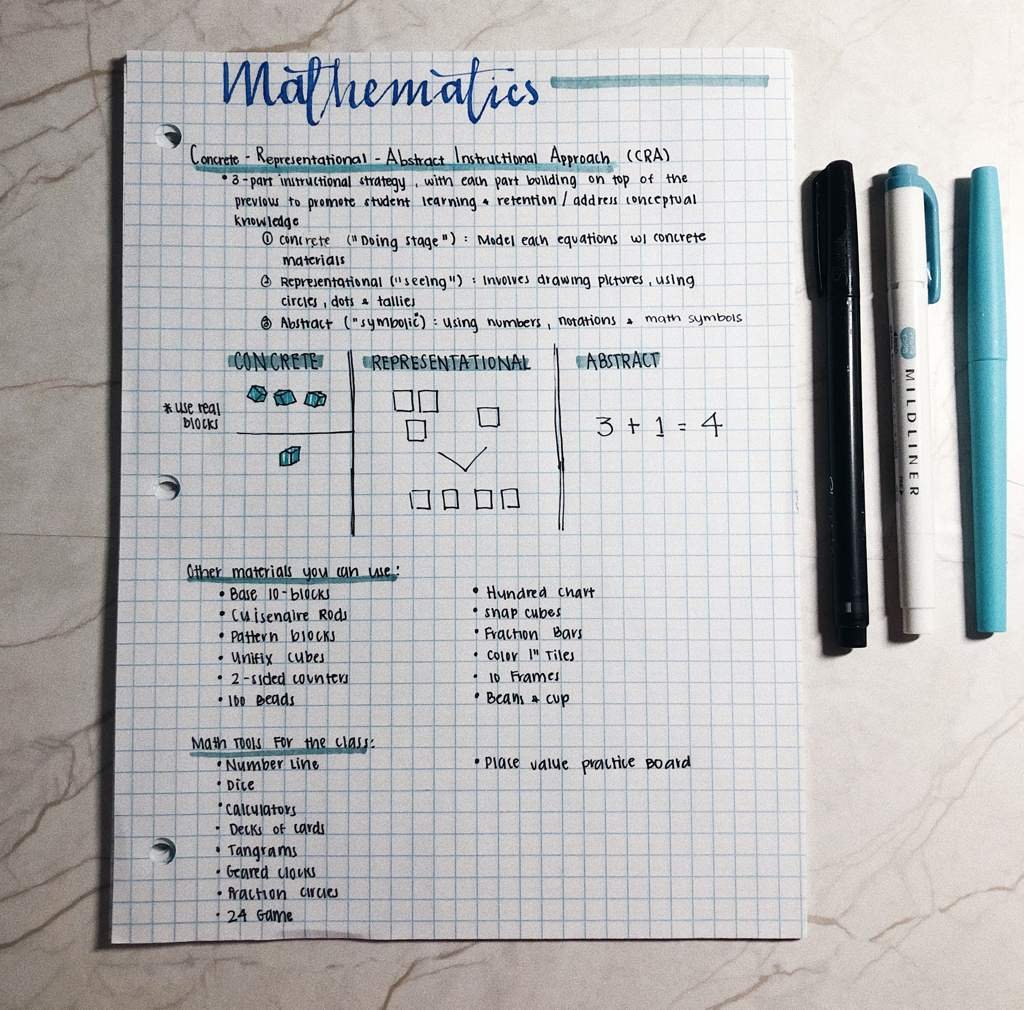 Mathematics
Concrete - Representational - Abstract Instructional Approach (CRA)
• 3-part instructional strategy, with each part building on top of the
previous to promote student learning & retention / address conceptual
knowledge
① Concrete ("Doing stage") : Model each equations w/ concrete
materials
② Representational ("seeing") : Involves drawing pictures, using
circles, dots & tallies
③ Abstract ("symbolic") : using numbers, notations & math symbols
CONCRETE
REPRESENTATIONAL
ABSTRACT
* use real
blocks
3 + 1 = 4
Other materials you can use:
• Base 10-blocks
• Cuisenaire Rods
• Pattern blocks
• Unifix cubes
• 2-sided counters
• 100 Beads
• Hundred chart
• snap cubes
• Fraction Bars
• Color 1" Tiles
• 10 Frames
• Beans & cup
Math Tools For the class:
• Number Line
• Dice
• calculators
• Decks of cards
• Tangrams
• Geared clocks
• Fraction circles
• 24 Game
• Place value practice Board
MILDLINER